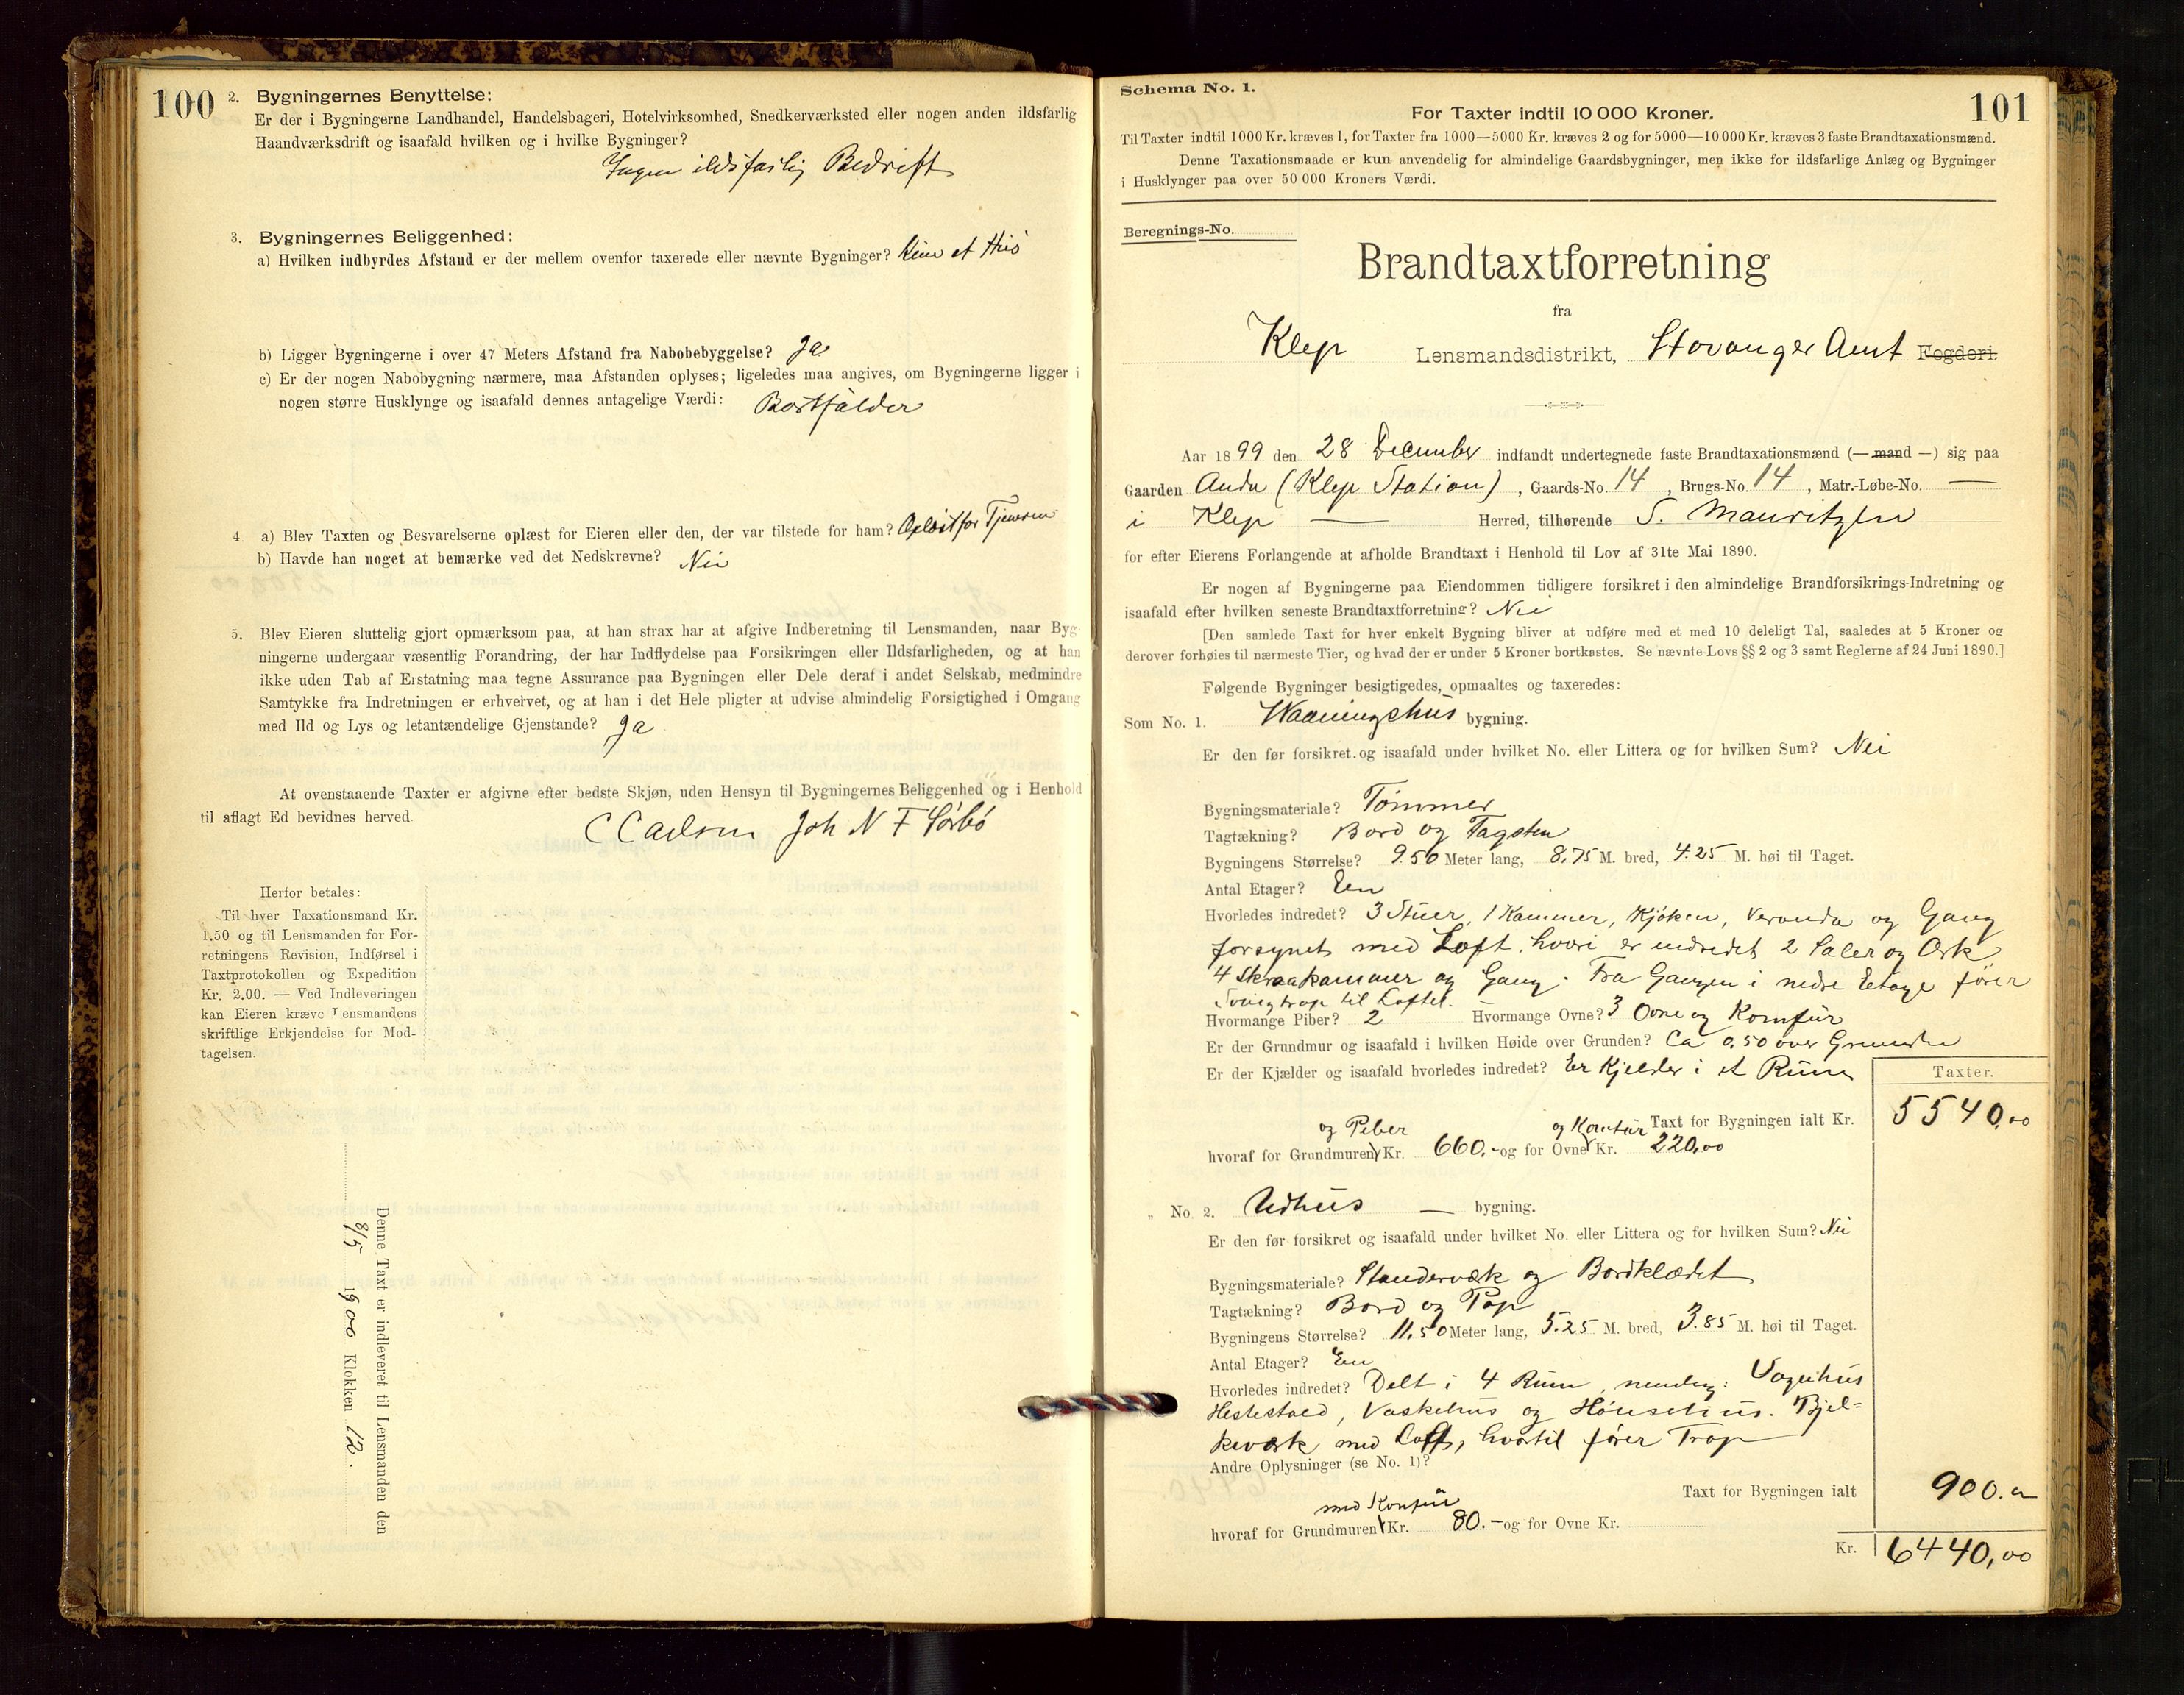 100
2. Bygningernes Benyttelse:
Er der i Bygningerne Landhandel, Handelsbageri, Hotelvirksomhed, Snedkerværksted eller nogen anden ildsfarlig
Haandværksdrift og isaafald hvilken og i hvilke Bygninger?
Ingen ildsfarlig Bedrift
3. Bygningernes Beliggenhed:
a) Hvilken indbyrdes Afstand er der mellem ovenfor taxerede eller nævnte Bygninger? Kun et Hus
b) Ligger Bygningerne i over 47 Meters Afstand fra Nabobebyggelse? Ja
c) Er der nogen Nabobygning nærmere, maa Afstanden oplyses; ligeledes maa angives, om Bygningerne ligger i
nogen større Husklynge og isaafald dennes antagelige Værdi: Bortfalder
4. a) Blev Taxten og Besvarelserne oplæst for Eieren eller den, der var tilstede for ham? Oplæst for Tjeneren
b) Havde han noget at bemærke ved det Nedskrevne? Nei
5. Blev Eieren sluttelig gjort opmærksom paa, at han strax har at afgive Indberetning til Lensmanden, naar Byg-
ningerne undergaar væsentlig Forandring, der har Indflydelse paa Forsikringen eller Ildsfarligheden, og at han
ikke uden Tab af Erstatning maa tegne Assurance paa Bygningen eller Dele deraf i andet Selskab, medmindre
Samtykke fra Indretningen er erhvervet, og at han i det Hele pligter at udvise almindelig Forsigtighed i Omgang
med Ild og Lys og letantændelige Gjenstande? Ja
At ovenstaaende Taxter er afgivne efter bedste Skjøn, uden Hensyn til Bygningernes Beliggenhed og i Henhold
til aflagt Ed bevidnes herved.
C Carlsen Joh N F Sörbö
Herfor betales:
Til hver Taxationsmand Kr.
1.50 og til Lensmanden for For-
retningens Revision, Indførsel i
Taxtprotokollen og Expedition
Kr. 2.00. — Ved Indleveringen
kan Eieren kræve Lensmandens
skriftlige Erkjendelse for Mod-
tagelsen.
Denne Taxt er indleveret til Lensmanden den
8/5 1900 Klokken 12.
Schema No. 1.
101
For Taxter indtil 10 000 Kroner.
Til Taxter indtil 1000 Kr. kræves 1, for Taxter fra 1000—5000 Kr. kræves 2 og for 5000—10 000 Kr. kræves 3 faste Brandtaxationsmænd.
Denne Taxationsmaade er kun anvendelig for almindelige Gaardsbygninger, men ikke for ildsfarlige Anlæg og Bygninger
i Husklynger paa over 50 000 Kroners Værdi.
Beregnings-No.
Brandtaxtforretning
fra
Klep Lensmandsdistrikt, Stavanger Amt Fogderi.
Aar 1899 den 28 December indfandt undertegnede faste Brandtaxationsmænd (— mand —) sig paa
Gaarden Anda (Klep Station), Gaards-No. 14, Brugs-No. 14, Matr.-Løbe-No. —
i Klep — Herred, tilhørende S. Mauritzen
for efter Eierens Forlangende at afholde Brandtaxt i Henhold til Lov af 31te Mai 1890.
Er nogen af Bygningerne paa Eiendommen tidligere forsikret i den almindelige Brandforsikrings-Indretning og
isaafald efter hvilken seneste Brandtaxtforretning? Nei
[Den samlede Taxt for hver enkelt Bygning bliver at udføre med et med 10 deleligt Tal, saaledes at 5 Kroner og
derover forhøies til nærmeste Tier, og hvad der er under 5 Kroner bortkastes. Se nævnte Lovs §§ 2 og 3 samt Reglerne af 24 Juni 1890.]
Følgende Bygninger besigtigedes, opmaaltes og taxeredes:
Som No. 1. Waaningshus bygning.
Er den før forsikret og isaafald under hvilket No. eller Littera og for hvilken Sum? Nei
Bygningsmateriale? Tömmer
Tagtækning? Bord og Tagsten
Bygningens Størrelse? 9.50 Meter lang, 8,75 M. bred, 4.25 M. høi til Taget.
Antal Etager? Een
Hvorledes indredet? 3 Stuer, 1 Kammer, Kjöken, Veranda og Gang
forsynet med Loft, hvori er indredet 2 Saler og Ark
4 Skraakammer og Gang. Fra Gangen i nedre Etage förer
Svingtrap til Loftet.
Hvormange Piber? 2 Hvormange Ovne? 3 Ovne og Komfür
Er der Grundmur og isaafald i hvilken Høide over Grunden? Ca 0,50 over Grunden
Er der Kjælder og isaafald hvorledes indredet? Er Kjelder i et Rum
Taxter.
Taxt for Bygningen ialt Kr. 5540,00
og Piber og Komfür
hvoraf for Grundmuren Kr. 660.- og for Ovne Kr. 220,00
„ No. 2. Udhus — bygning.
Er den før forsikret og isaafald under hvilket No. eller Littera og for hvilken Sum? Nei
Bygningsmateriale? Standerværk og Bordklædet
Tagtækning? Bord og Pap
Bygningens Størrelse? 11,50 Meter lang, 5.25 M. bred, 3.85 M. høi til Taget.
Antal Etager? En
Hvorledes indredet? Delt i 4 Rum, nemlig: Vognhus
Hestestald, Vaskehus og Hönsehus. Bjel-
keværk med Loft, hvortil förer Trap
Andre Oplysninger (se No. 1)?
Taxt for Bygningen ialt 900.
med Komfür
hvoraf for Grundmuren Kr. 80.- og for Ovne Kr.
Kr. 6440,00